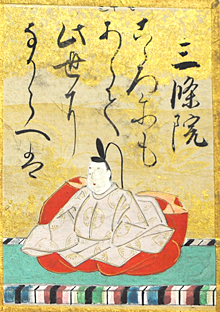 三條院
こゝろにも
あらて
此世に
なからへは